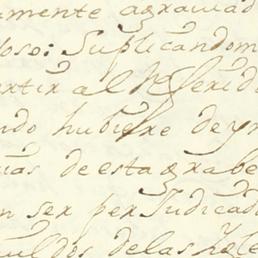 amente agraviad
loso: Suplicandom
ertir al Referid
ndo hubiere de yn
ias de esta grabe
n ser perJudicad
de las Ygle